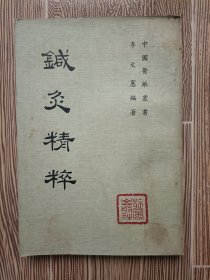 中國醫藥叢書
李文憲編著
鍼灸精粹